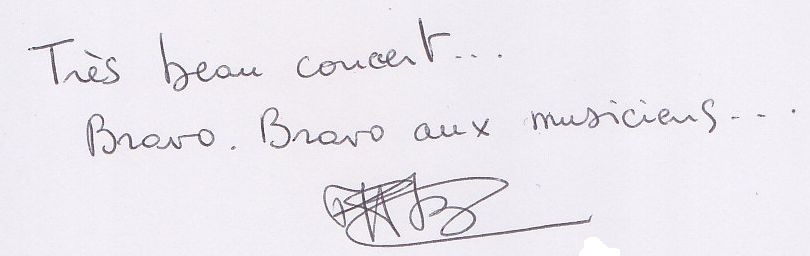 Très beau concert...
Bravo. Bravo aux musiciens...